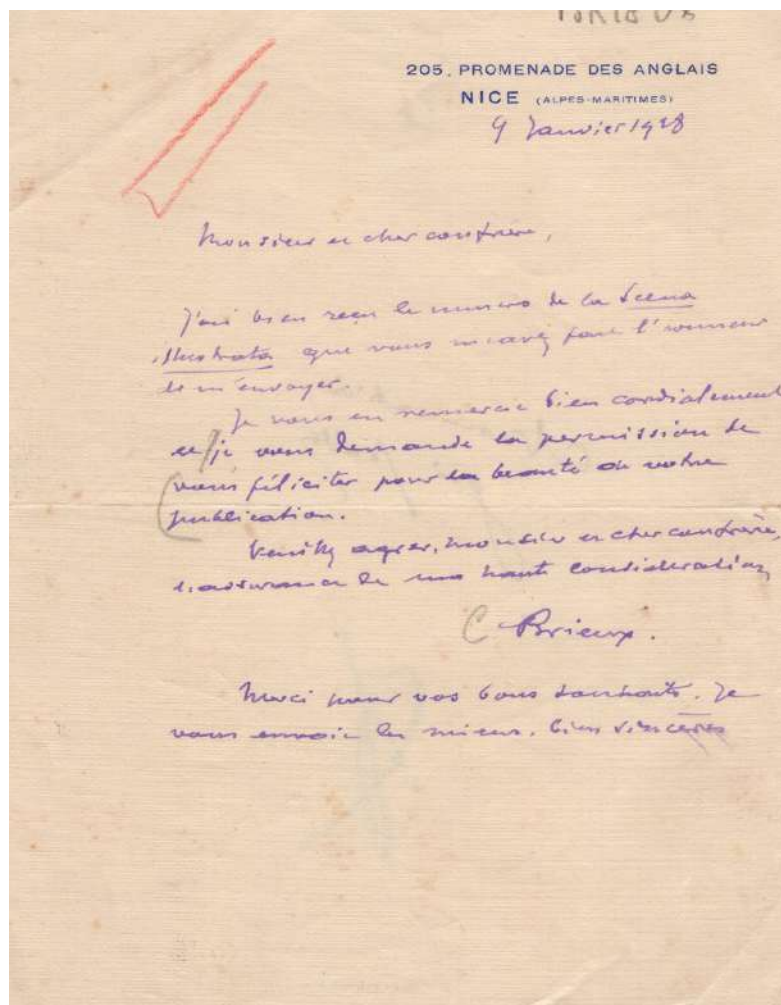 205, PROMENADE DES ANGLAIS
NICE (ALPES-MARITIMES)
9 Janvier 1928
Monsieur et cher confrère,
J'ai bien reçu le numéro de la Scena
illustrata que vous m'avez fait l'honneur
de m'envoyer.
Je vous en remercie bien cordialement
et je vous demande la permission de
vous féliciter pour la beauté de votre
publication.
Veuillez agréer, Monsieur et cher confrère,
l'assurance de ma haute considération
Brieux.
Merci pour vos bons souhaits. Je
vous envoie les miens, bien sincères